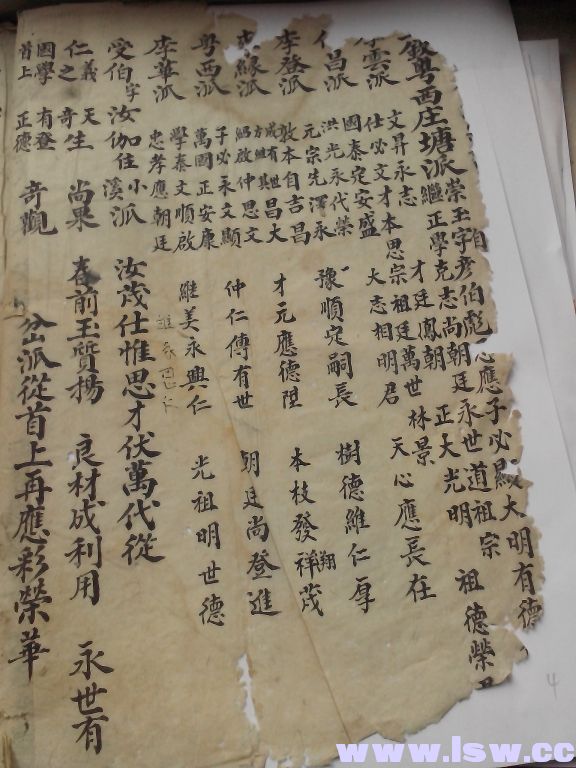 粵西庄塘派 榮玉字彥伯彪 心應子必顯大明有德
繼正學克志尚朝廷永世道祖宗 祖德榮
雲派 文昇永志 才廷鳳朝 正大光明
仕必文才本思宗祖廷萬世林景
國泰定安盛 大志相明君 天心應長在
昌派 洪光永代榮
元宗先澤永 豫順定嗣長 樹德維仁厚
李登派 敦本自吉昌 才元應德陞 本枝發祥茂
翔
緣派 成有世昌大
方維其
紹啟仲思文 仲仁傳有世 朝廷尚登進
粵西派 子必永文顯
萬國正安康 維美永興仁 光祖明世德
李華派 學泰文順啟
忠孝應朝廷
受伯字汝伽住溪小派 汝茂仕惟思才伏萬代從
仁義之 天生奇 尚果 春前玉質揚 良材成利用 永世有
國學首上 有登正德 奇觀 盆派從首上再應彩榮華
4
www.lsw.cc